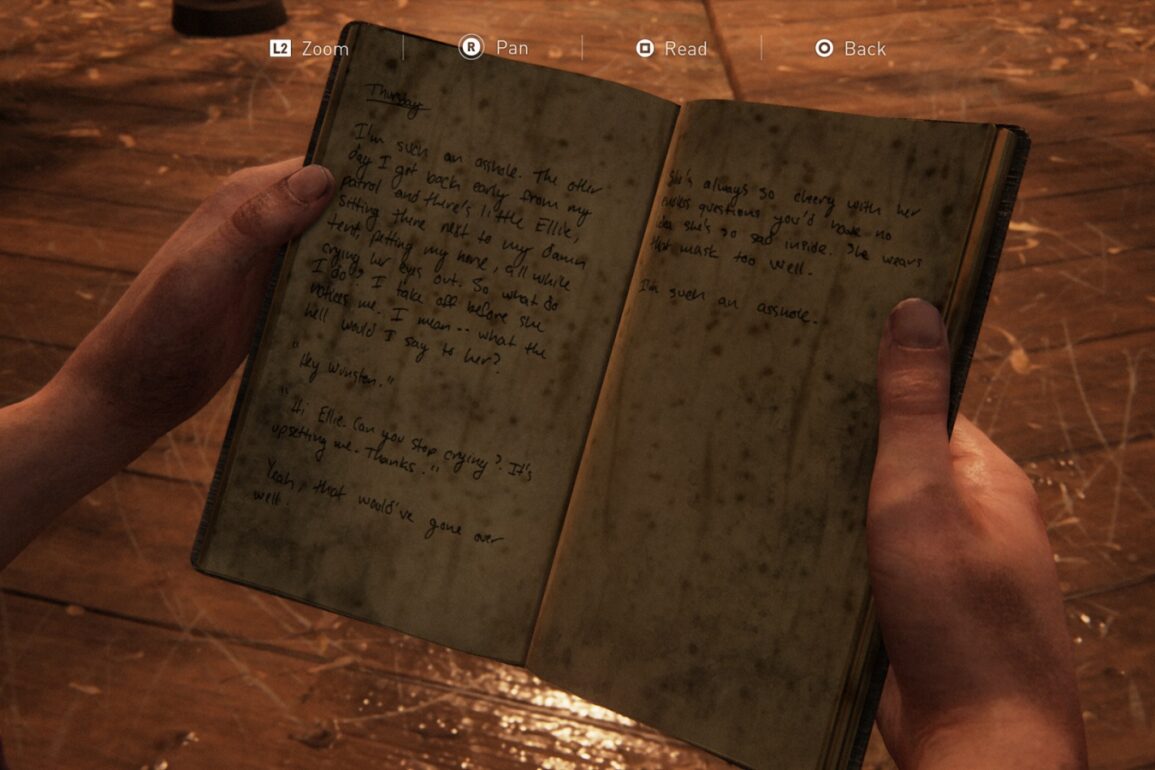 L2 Zoom
R Pan
Read
Back
Thursday
I'm such an asshole. The other
day I get back early from my
patrol and there's little Ellie,
sitting there next to my damn
tent, petting my horse, all while
crying her eyes out. So what do
I do? I take off before she
notices me. I mean -- what the
hell would I say to her?
"Hey Winston."
"Hi Ellie. Can you stop crying? It's
upsetting me. Thanks."
Yeah, that would've gone over
well.
She's always so cheery with her
endless questions you'd have no
idea she's so sad inside. She wears
that mask too well.
I'm such an asshole.